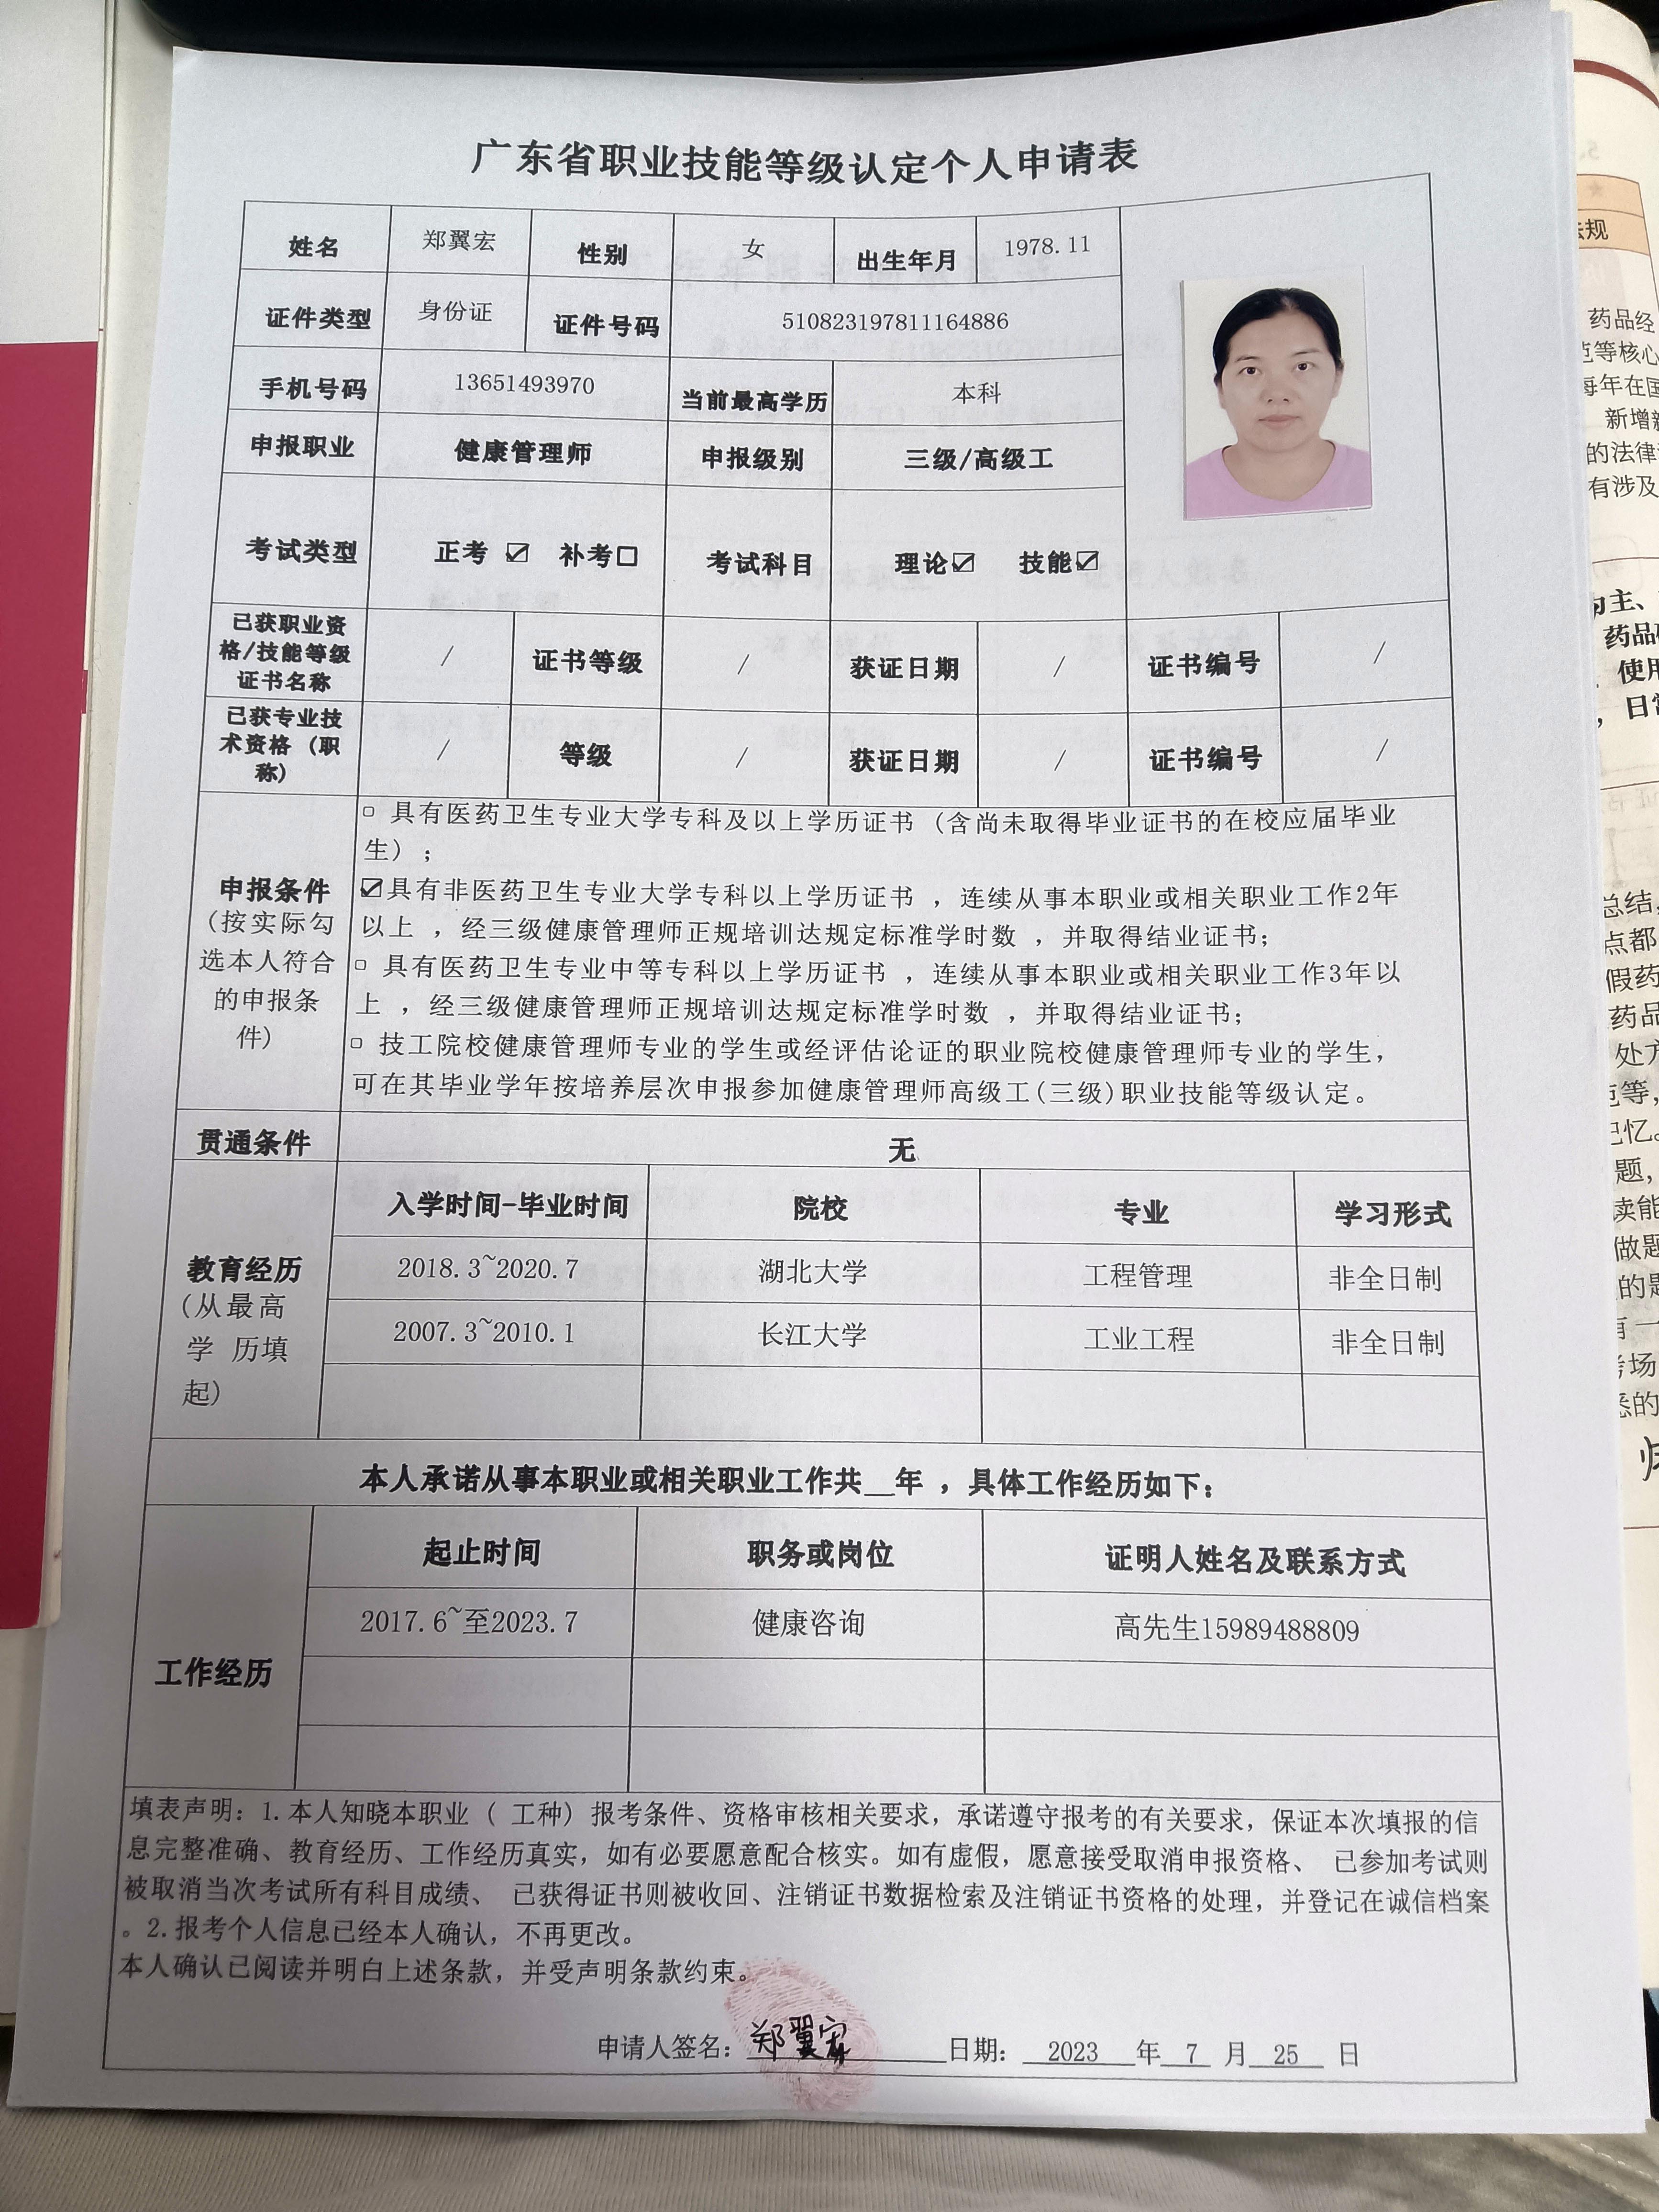 广东省职业技能等级认定个人申请表
姓名 郑翼宏 性别 女 出生年月 1978.11
证件类型 身份证 证件号码 510823197811164886
手机号码 13651493970 当前最高学历 本科
申报职业 健康管理师 申报级别 三级/高级工
考试类型 正考 ☑ 补考□ 考试科目 理论☑ 技能☑
已获职业资
格/技能等级
证书名称 / 证书等级 / 获证日期 / 证书编号 /
已获专业技
术资格（职
称） / 等级 / 获证日期 / 证书编号 /
申报条件
(按实际勾
选本人符合
的申报条
件)
□ 具有医药卫生专业大学专科及以上学历证书（含尚未取得毕业证书的在校应届毕业
生）；
☑具有非医药卫生专业大学专科以上学历证书 ，连续从事本职业或相关职业工作2年
以上 ，经三级健康管理师正规培训达规定标准学时数 ，并取得结业证书；
□ 具有医药卫生专业中等专科以上学历证书 ，连续从事本职业或相关职业工作3年以
上 ，经三级健康管理师正规培训达规定标准学时数 ，并取得结业证书；
□ 技工院校健康管理师专业的学生或经评估论证的职业院校健康管理师专业的学生，
可在其毕业学年按培养层次申报参加健康管理师高级工(三级)职业技能等级认定。
贯通条件 无
教育经历
(从最高
学 历填
起)
入学时间-毕业时间 院校 专业 学习形式
2018.3~2020.7 湖北大学 工程管理 非全日制
2007.3~2010.1 长江大学 工业工程 非全日制
本人承诺从事本职业或相关职业工作共__年 ，具体工作经历如下：
工作经历
起止时间 职务或岗位 证明人姓名及联系方式
2017.6~至2023.7 健康咨询 高先生15989488809
填表声明：1.本人知晓本职业（ 工种）报考条件、资格审核相关要求，承诺遵守报考的有关要求，保证本次填报的信
息完整准确、教育经历、工作经历真实，如有必要愿意配合核实。如有虚假，愿意接受取消申报资格、 已参加考试则
被取消当次考试所有科目成绩、 已获得证书则被收回、注销证书数据检索及注销证书资格的处理，并登记在诚信档案
。2.报考个人信息已经本人确认，不再更改。
本人确认已阅读并明白上述条款，并受声明条款约束。
申请人签名：郑翼宏 日期： 2023 年 7 月 25 日
法规
药品经
等核心
每年在国
新增新
的法律
有涉及
为主、
药品
使用
，日常
总结，
点都
假药
药品
处方
等，
记忆。
题，
读能
做题
的题
有一
考场
悉的